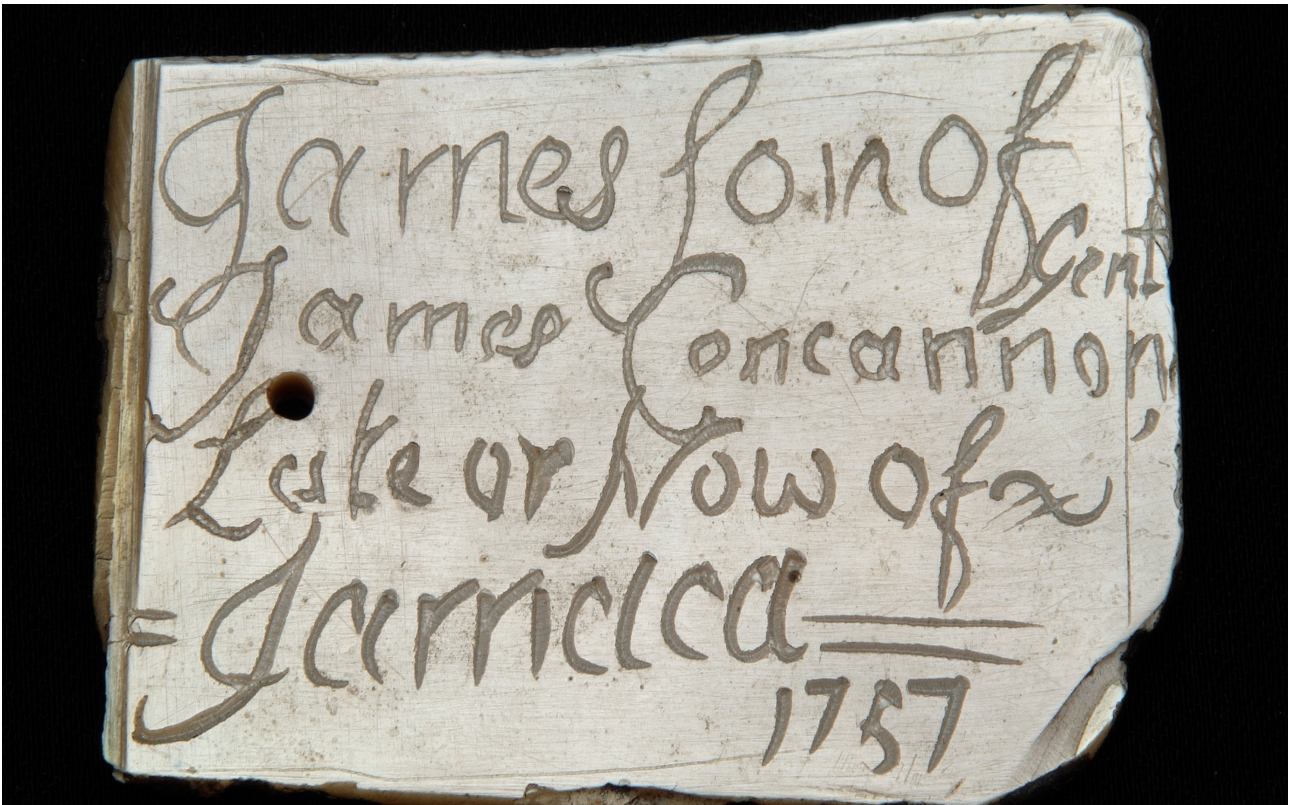 James ſon of
Gent
James Concannon,
Late or Now of
=Jamaica=
1757